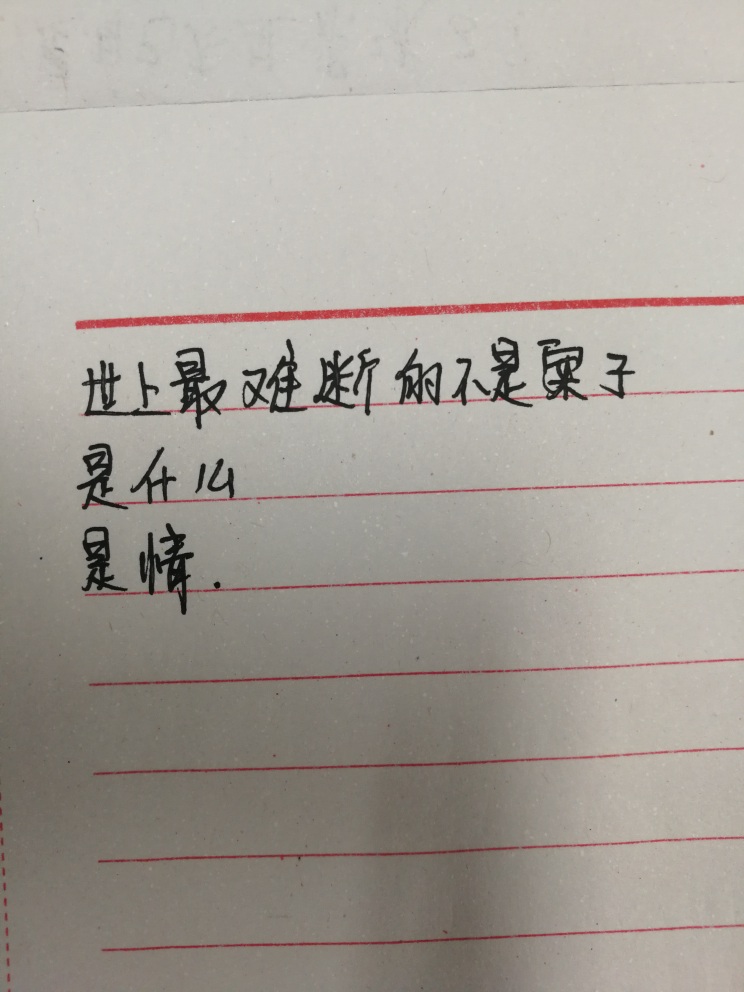 世上最难断的不是案子
是什么
是情.